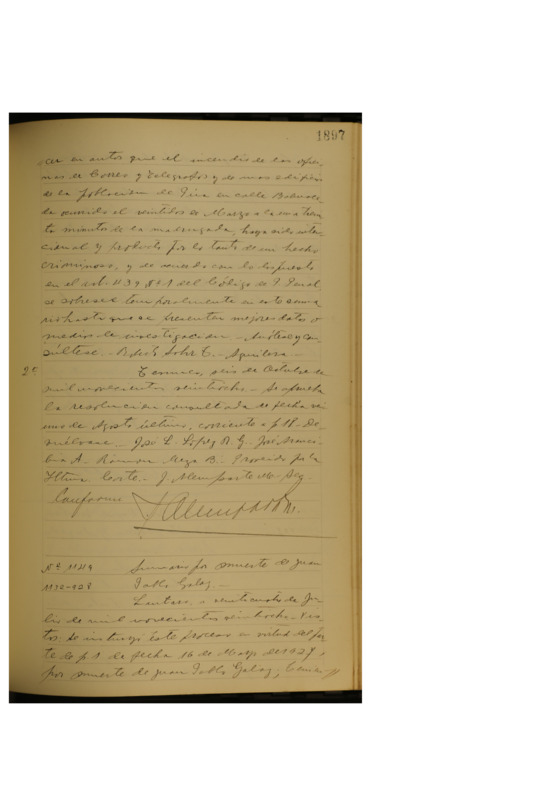 1897
en autos que el incendio de las ofici-
nas de Correos y Telégrafos y demas edificios
de la poblacion de en calle
ocurrido el veintidos de Marzo a la una trein-
ta minutos de la madrugada, haya sido inten-
cional y producto por lo tanto de un hecho
criminoso, y de acuerdo con lo dispuesto
en el art. 439 Nº 1 del Código de P. Penal
se sobresee temporalmente en este suma-
rio hasta que se presenten mejores datos o
medios de investigacion. - Anótese y con-
súltese. - Aguilera -
2ª Temuco, seis de Octubre de
mil novecientos veintiocho. - Se aprueba
la resolucion consultada de fecha
de Agosto último, corriente a f. 18. De-
vuélvase. - José L. López R. G. José
A. Ramon Meza B. Proveido por la
Iltma. Corte. - J. Alemparte Sec.
Conforme
J Alemparte
Nº 1149 Sumario por muerte de Juan
Pablo Galaz. -
Lautaro, a veinticuatro de Ju-
lio de mil novecientos veintiocho. - Vis-
tos: Se instruyó este proceso en virtud del par-
te de f. 1. de fecha 16 de Marzo de 1927,
por muerte de Juan Pablo Galaz,